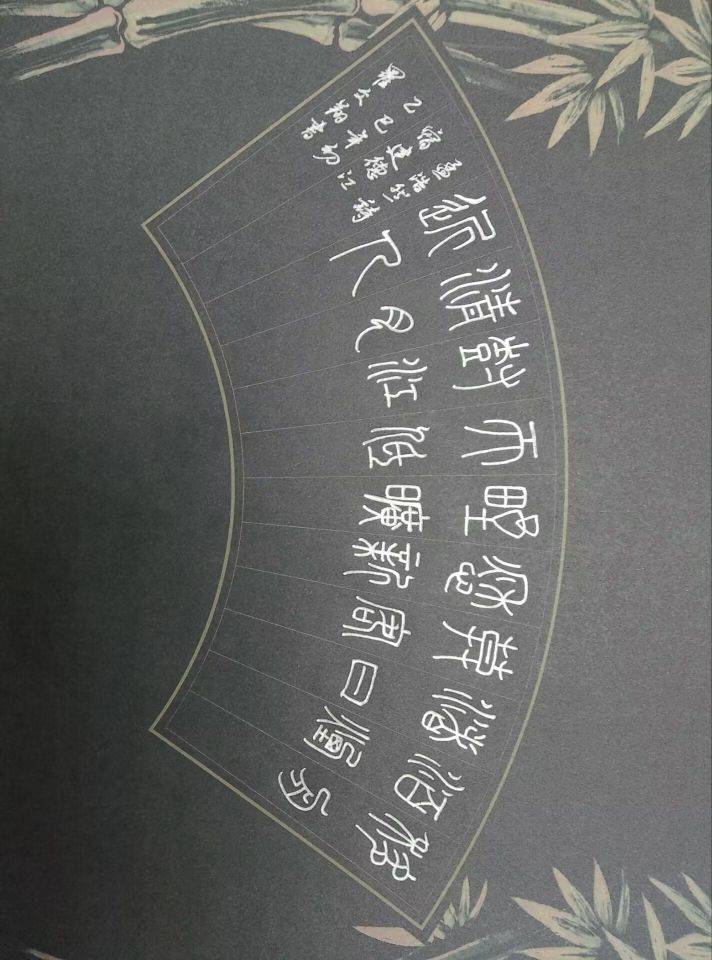 移舟
泊煙
渚日
莫客
愁新
野曠
天低
樹江
清月
近人
孟浩然詩
宿建德江
乙巳年初
羅文書